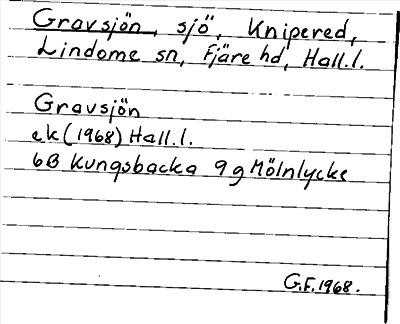 Gravsjön, sjö, Knipered,
Lindome sn, Fjäre hd, Hall.l.
Gravsjön
ek (1968) Hall.l.
6B Kungsbacka 9g Mölnlycke
G.F. 1968.